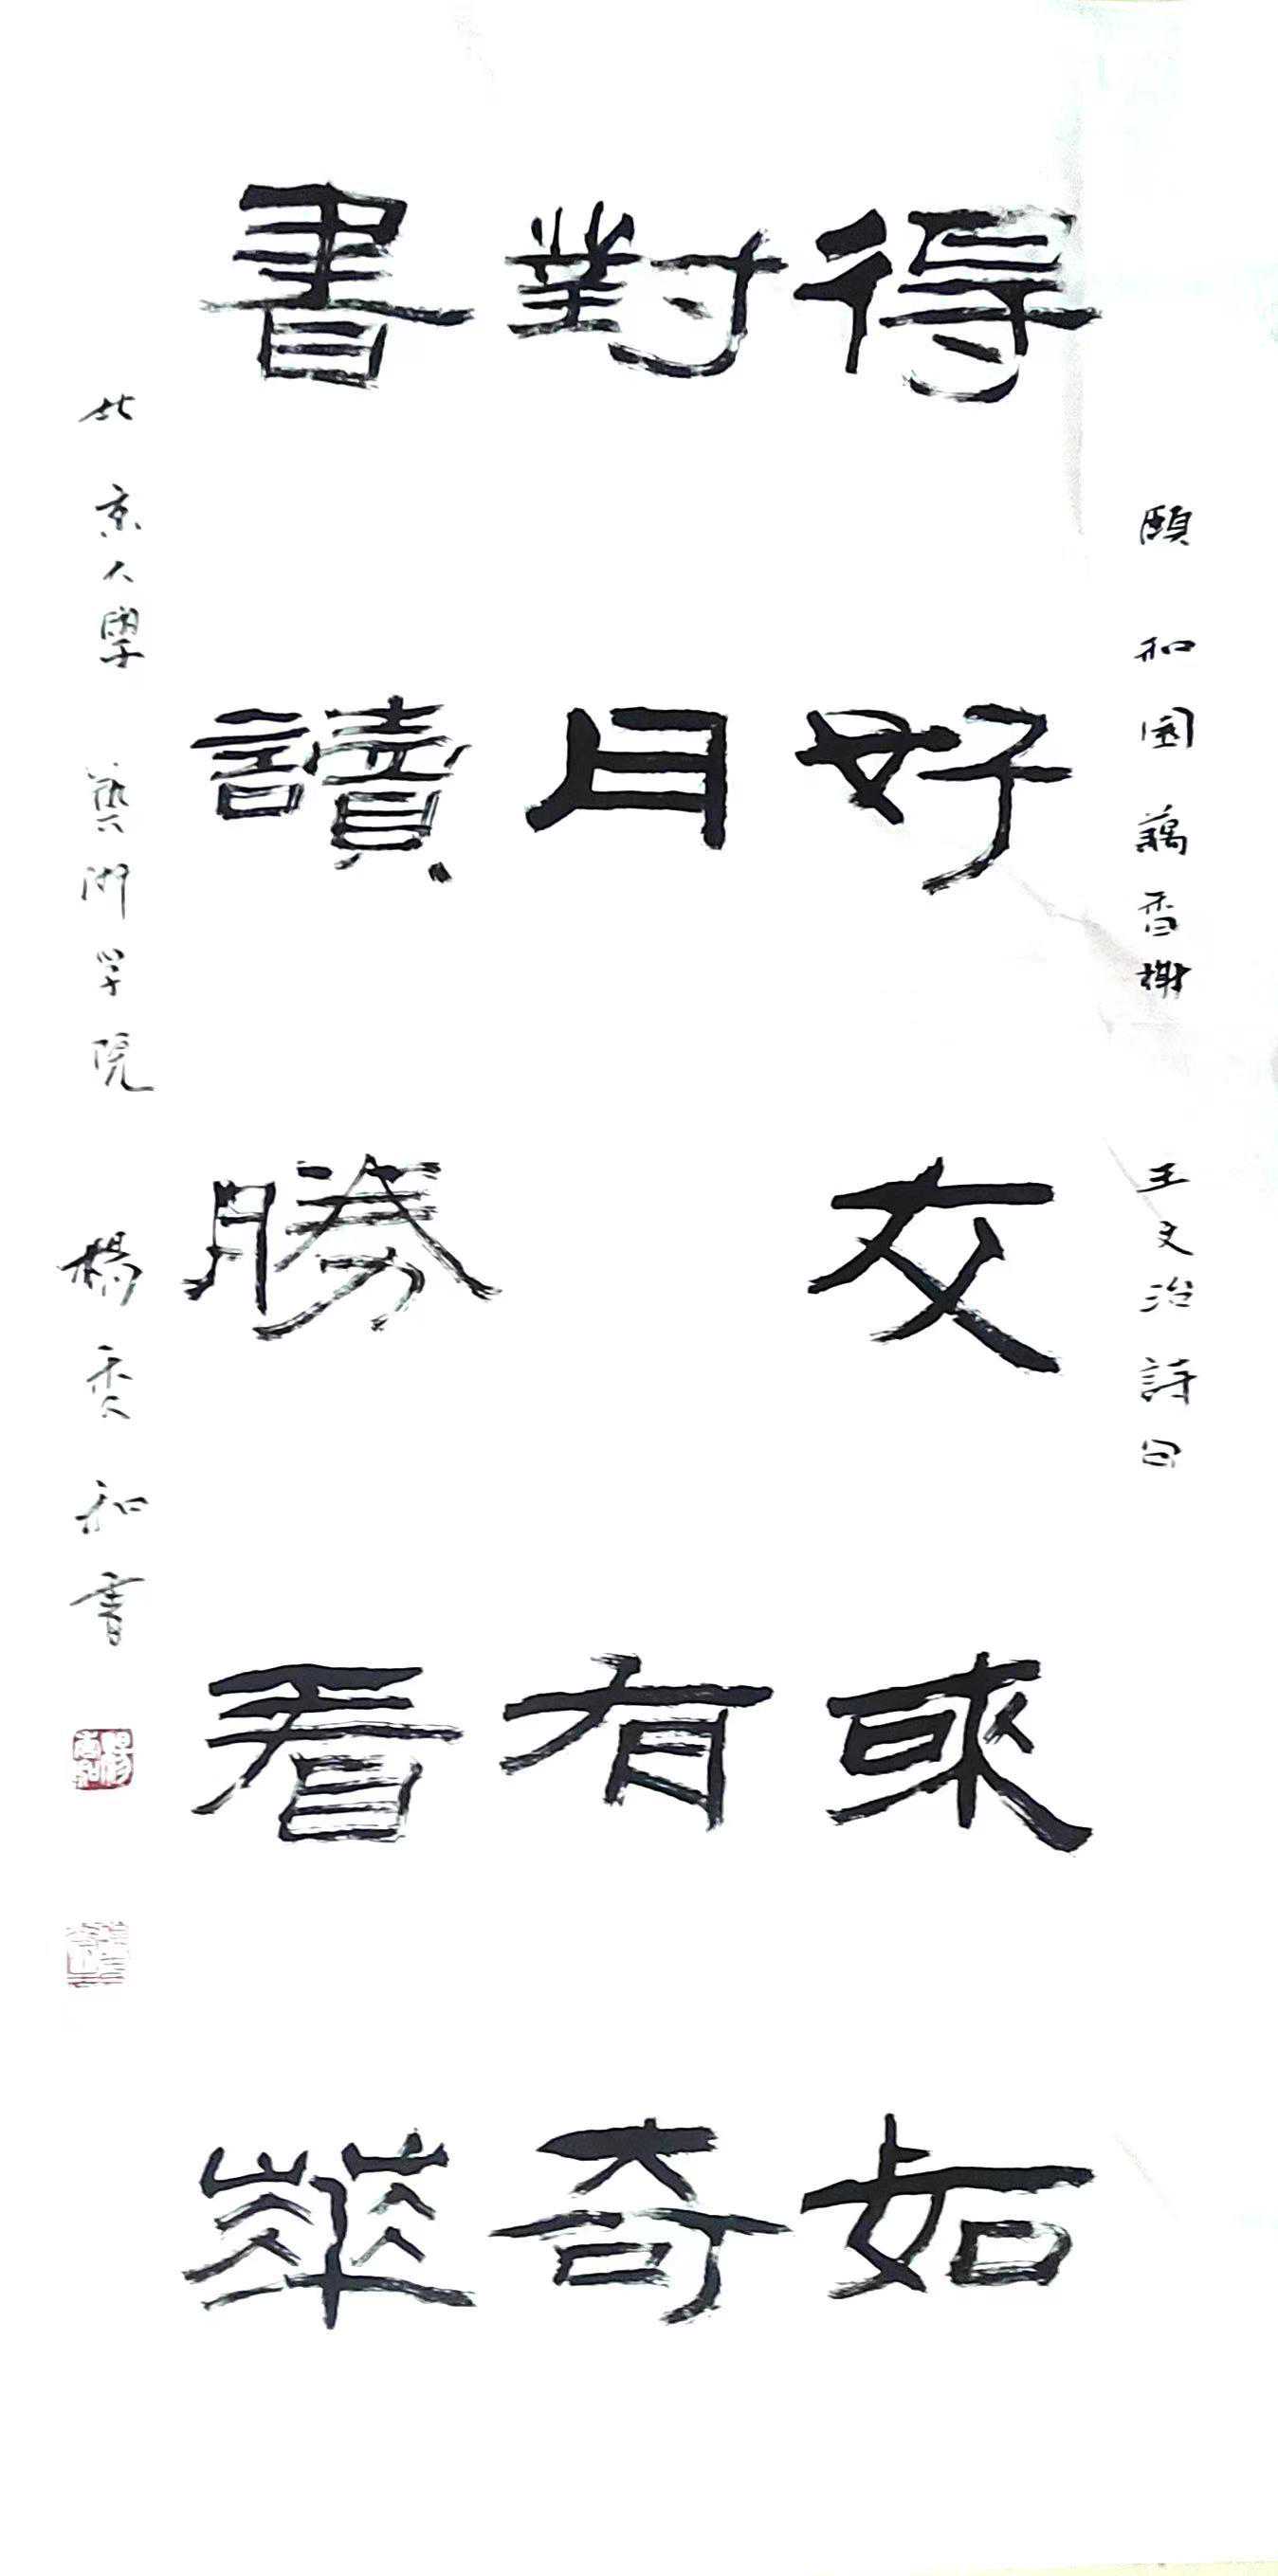 頤和園藕香榭 王文治詩句
得好友來如
對月 有奇
書讀勝看華
北京大學 藝術学院 楊 和書